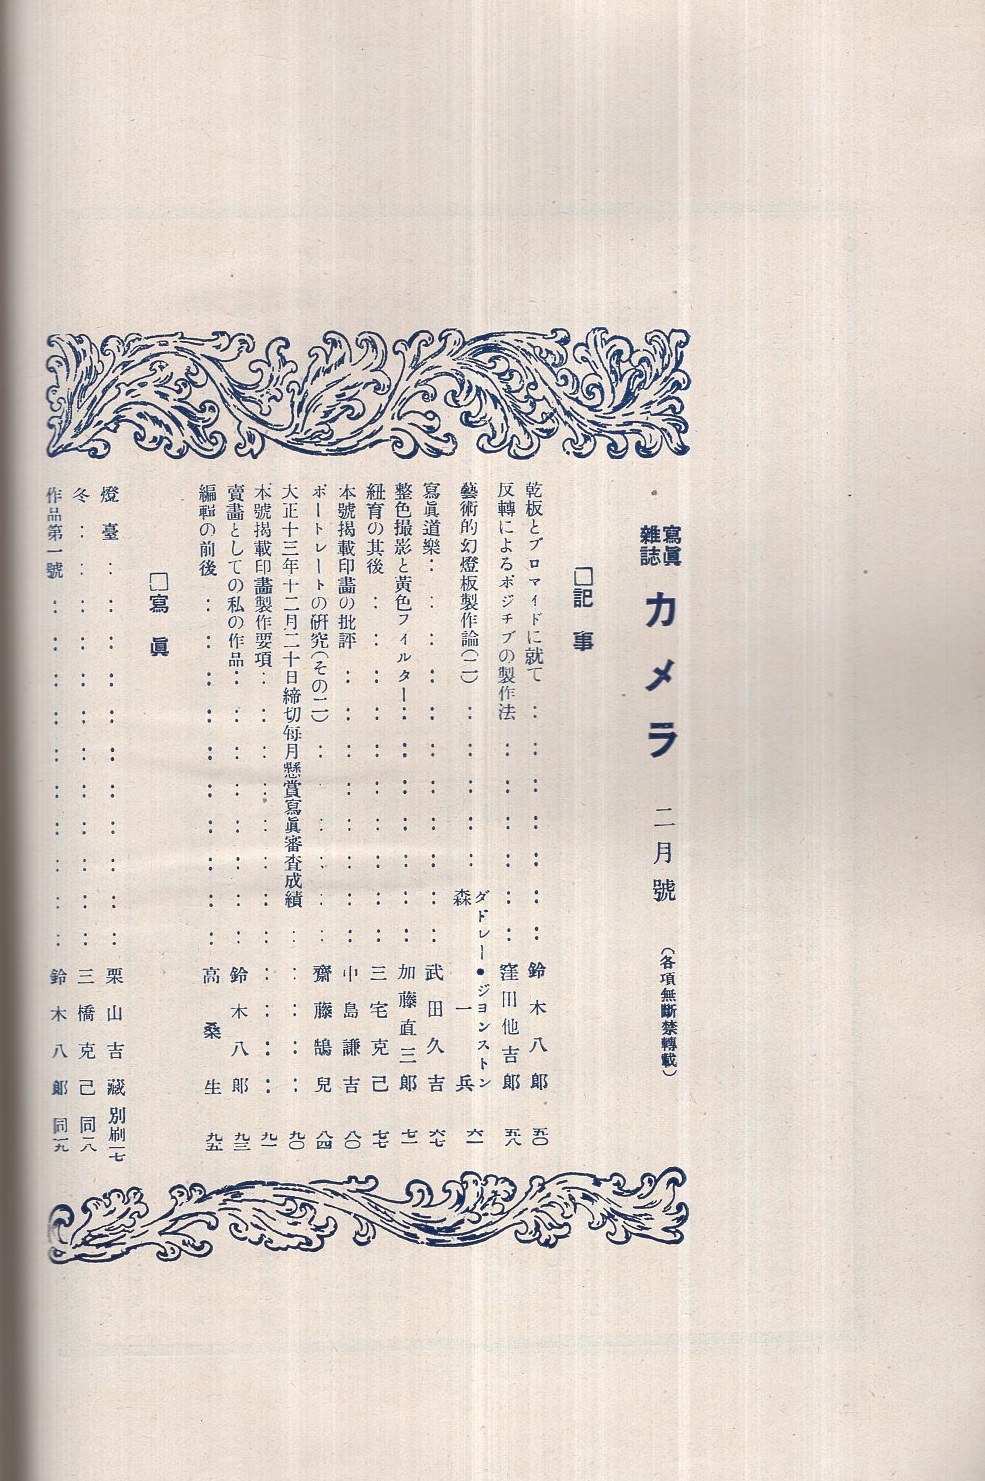 寫眞雜誌 カメラ 二月號 （各項無斷禁轉載）
□記事
乾板とブロマイドに就て 鈴木八郞 五〇
反轉によるポジチブの製作法 窪田他吉郞 五八
藝術的幻燈板製作論（二） ダドレー・ジヨンストン 森一兵 六一
寫眞道樂 武田久吉 六七
整色撮影と黃色フィルター 加藤直三郞 七一
紐育の其後 三宅克己 七七
本號揭載印畵の批評 中島謙吉 八〇
ポートレートの硏究（その二） 齋藤鵠兒 八四
大正十三年十二月二十日締切每月懸賞寫眞審査成績 九〇
本號揭載印畵製作要項 九一
賣畵としての私の作品 鈴木八郞 九三
編輯の前後 高桑生 九五
□寫眞
燈臺 栗山吉藏 別刷一七
冬 三橋克己 同一八
作品第一號 鈴木八郞 同一九